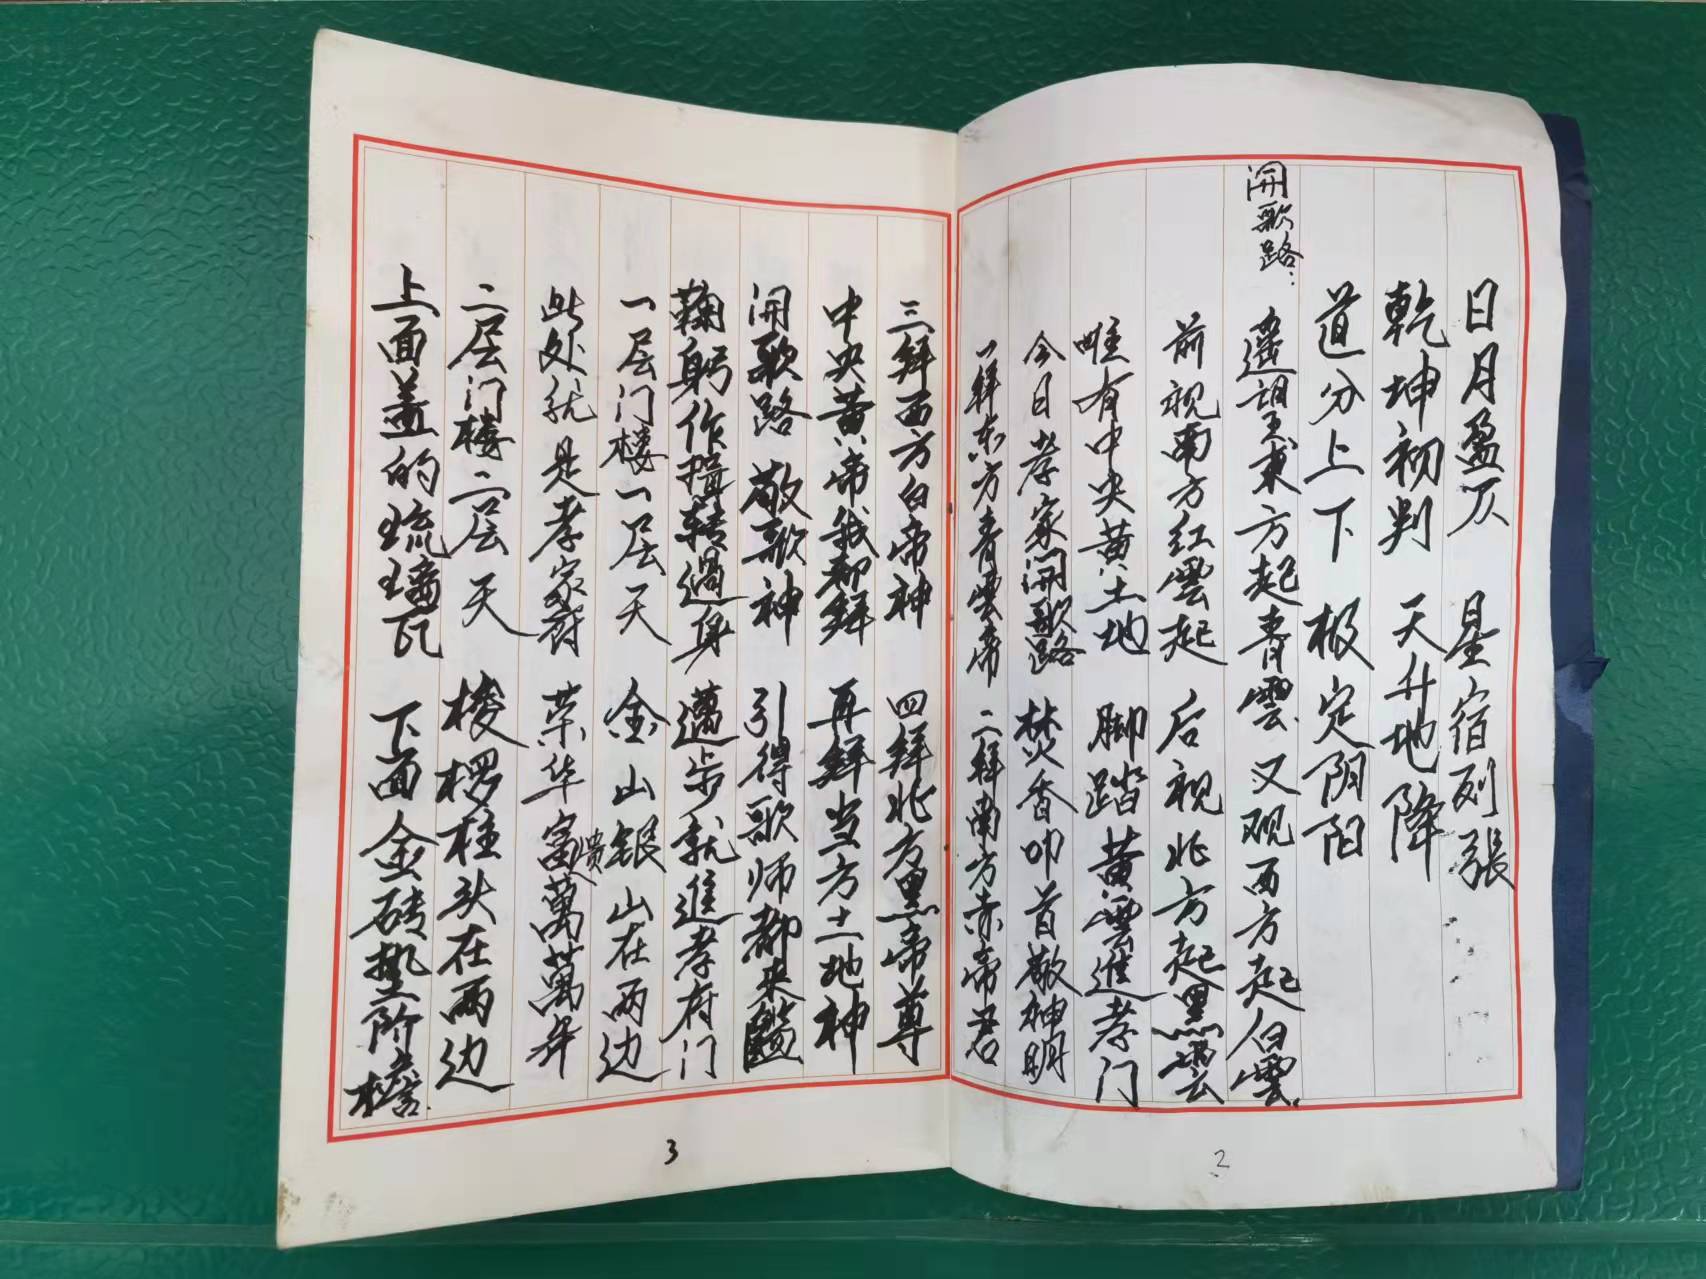 日月盈仄 星宿列張
乾坤初判 天升地降
道分上下 极定阴阳
開歌路：
遥望東方起青雲 又观西方起白雲
前视南方红雲起 后视北方起黑雲
唯有中央黄土地 脚踏黄雲進孝门
今日孝家開歌路 焚香叩首敬神明
一拜东方青雲帝 二拜南方赤帝君
2
三拜西方白帝神 四拜北方黑帝尊
中央黄帝我都拜 再拜当方土地神
開歌路 敬歌神 引得歌师都来
鞠躬作揖转過身 邁步就進孝府门
一层门楼一层天 金山银山在两边
此处就是孝家府 荣华富贵萬萬年
二层门楼二层天 梭椤柱头在两边
上面盖的琉璃瓦 下面金砖垫阶檐
3